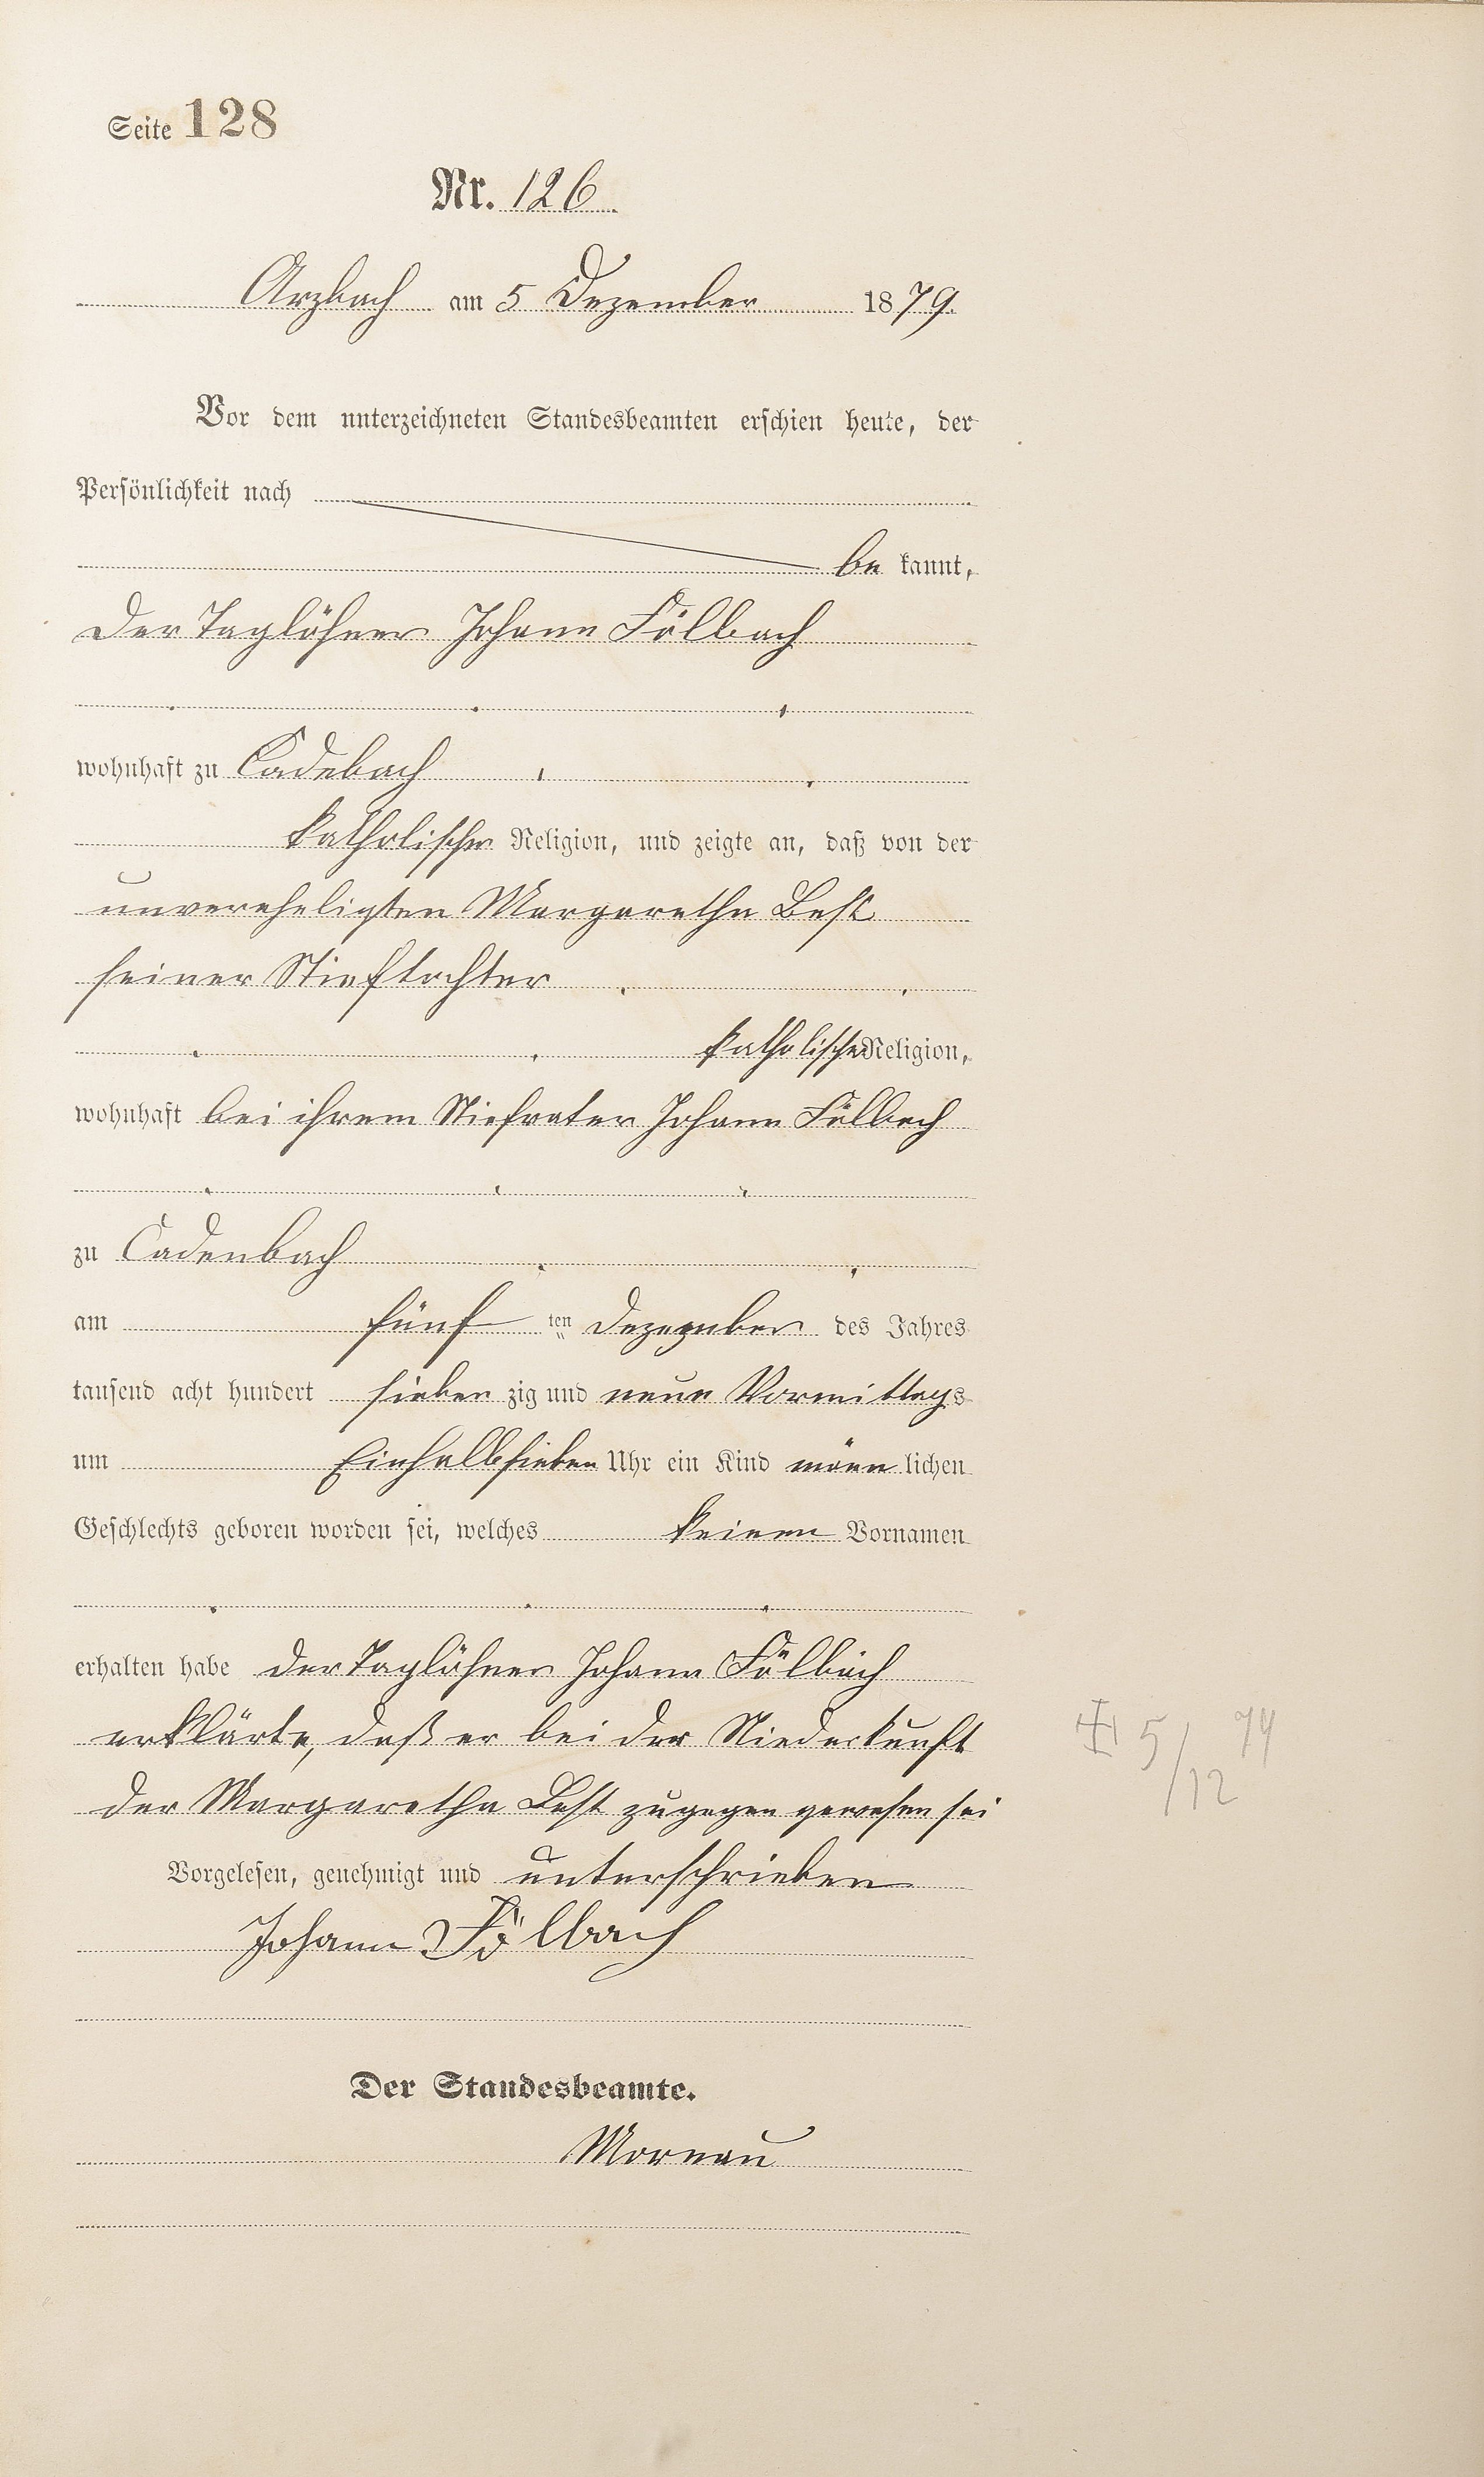 Seite 128
Nr. 126
Arzbach am 5 Dezember 1879.
Vor dem unterzeichneten Standesbeamten erschien heute, der
Persönlichkeit nach
be kannt,
der Taglöhner Johann Fölbach
wohnhaft zu Cadebach
katholischer Religion, und zeigte an, daß von der
unvereheligten Margaretha Best
seiner Stieftochter
katholischer Religion,
wohnhaft bei ihrem Stiefvater Johann Fölbach
zu Cadenbach
am fünf ten Dezember des Jahres
tausend acht hundert sieben zig und neun Vormittags
um Einhalbsieben Uhr ein Kind männ lichen
Geschlechts geboren worden sei, welches keinen Vornamen
erhalten habe der Taglöhner Johann Fölbach
erklärte, daß er bei der Niederkunft
der Margaretha Best zugegen gewesen sei
5/12 79
Vorgelesen, genehmigt und unterschrieben
Johann Fölbach
Der Standesbeamte.
Mornau